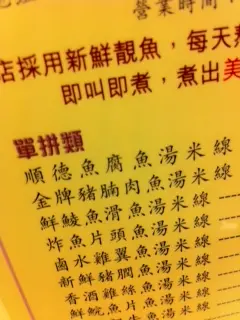 營業時間
店採用新鮮靚魚，每天
即叫即煮，煮出美
單拼類
順德魚腐魚湯米線
金牌豬腩肉魚湯米線
鮮鯪魚滑魚湯米線
炸魚片頭魚湯米線
鹵水雞翼魚湯米線
新鮮豬膶魚湯米線
香酒雞絲魚湯米線
鮮鯇魚片魚湯米線